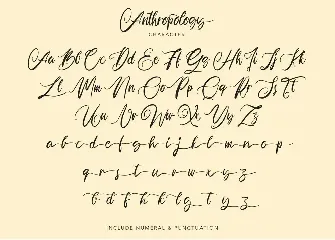 Anthropology
CHARACTER
Aa Bb Cc Dd Ee Ff Gg Hh Ii Jj Kk
Ll Mm Nn Oo Pp Qq Rr Ss Tt
Uu Vv Ww Xx Yy Zz
a b c d e f g h i j k l m n o p
q r s t u v w x y z
b d f h k l g t y z
INCLUDE NUMERAL & PUNCTUATION